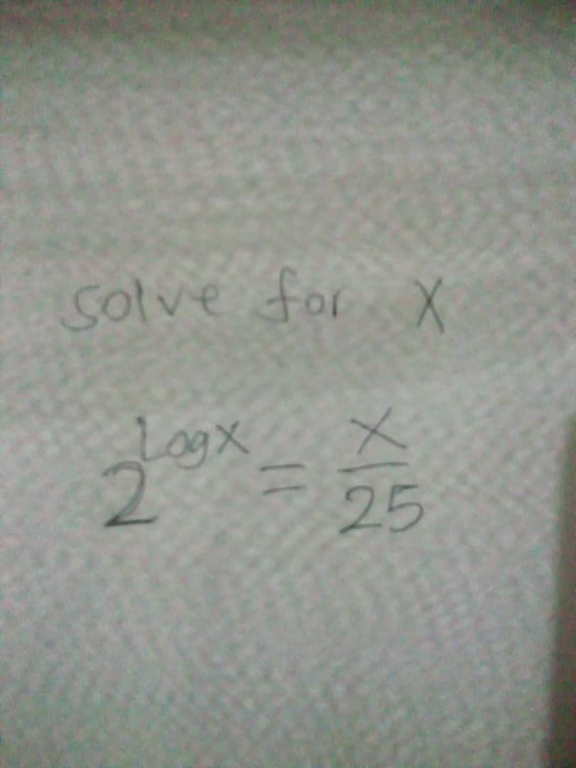 solve for x
2^{Log x} = \frac{x}{25}